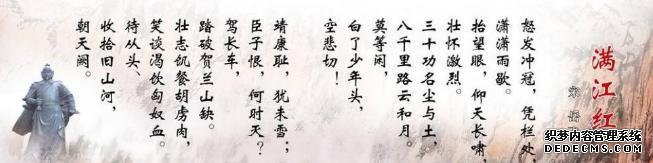 满江红
宋 岳
怒发冲冠，凭栏处
潇潇雨歇。
抬望眼，仰天长啸
壮怀激烈。
三十功名尘与土，
八千里路云和月。
莫等闲，
白了少年头，
空悲切！
靖康耻，犹未雪；
臣子恨，何时灭？
驾长车，
踏破贺兰山缺。
壮志飢餐胡虏肉，
笑谈渴饮匈奴血。
待从头、
收拾旧山河，
朝天阙。
织梦内容管理系统
DEDECMS.COM